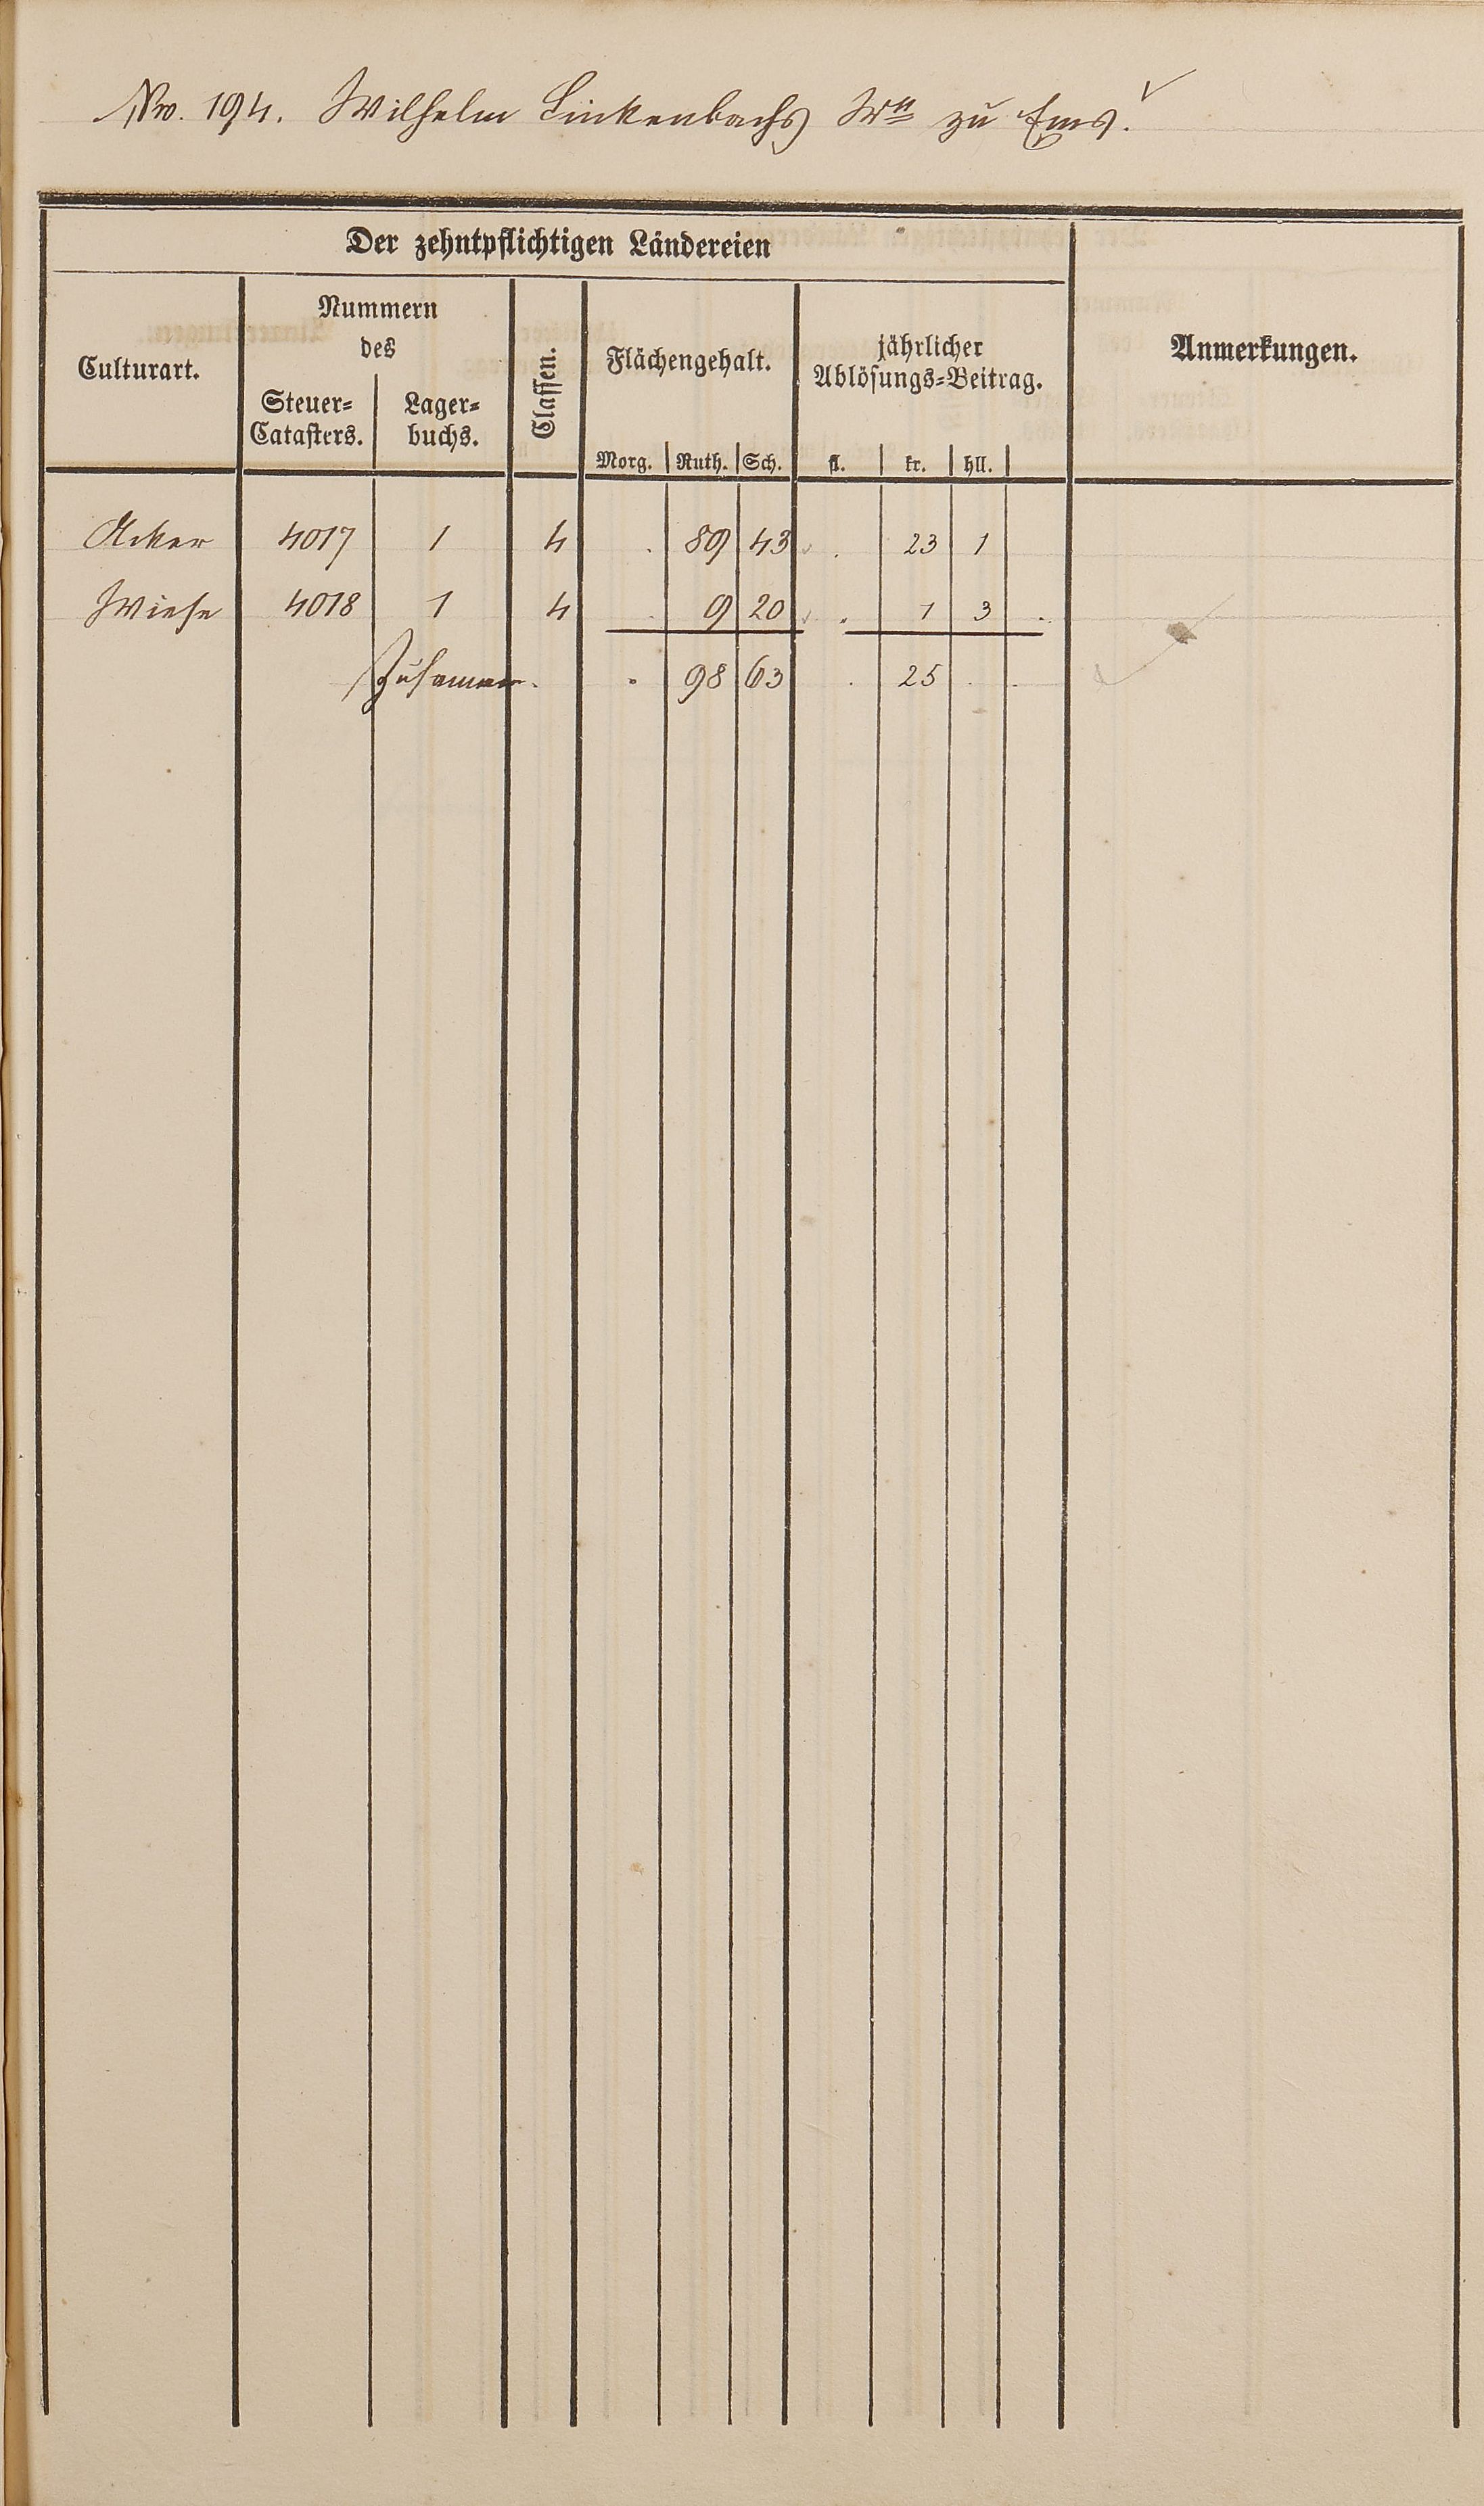 No. 194. Wilhelm Linkenbachs Wtt zu Ems.
Der zehntpflichtigen Ländereien
Culturart.
Nummern
des
Steuer=
Catasters.
Lager=
buchs.
Classen.
Flächengehalt.
Morg. Ruth. Sch.
jährlicher
Ablösungs=Beitrag.
fl. kr. hll.
Anmerkungen.
Acker 4017 1 4 . 89 43 . 23 1
Wiese 4018 1 4 . 9 20 . 1 3 .
Zusammen. . 98 63 . 25 . .